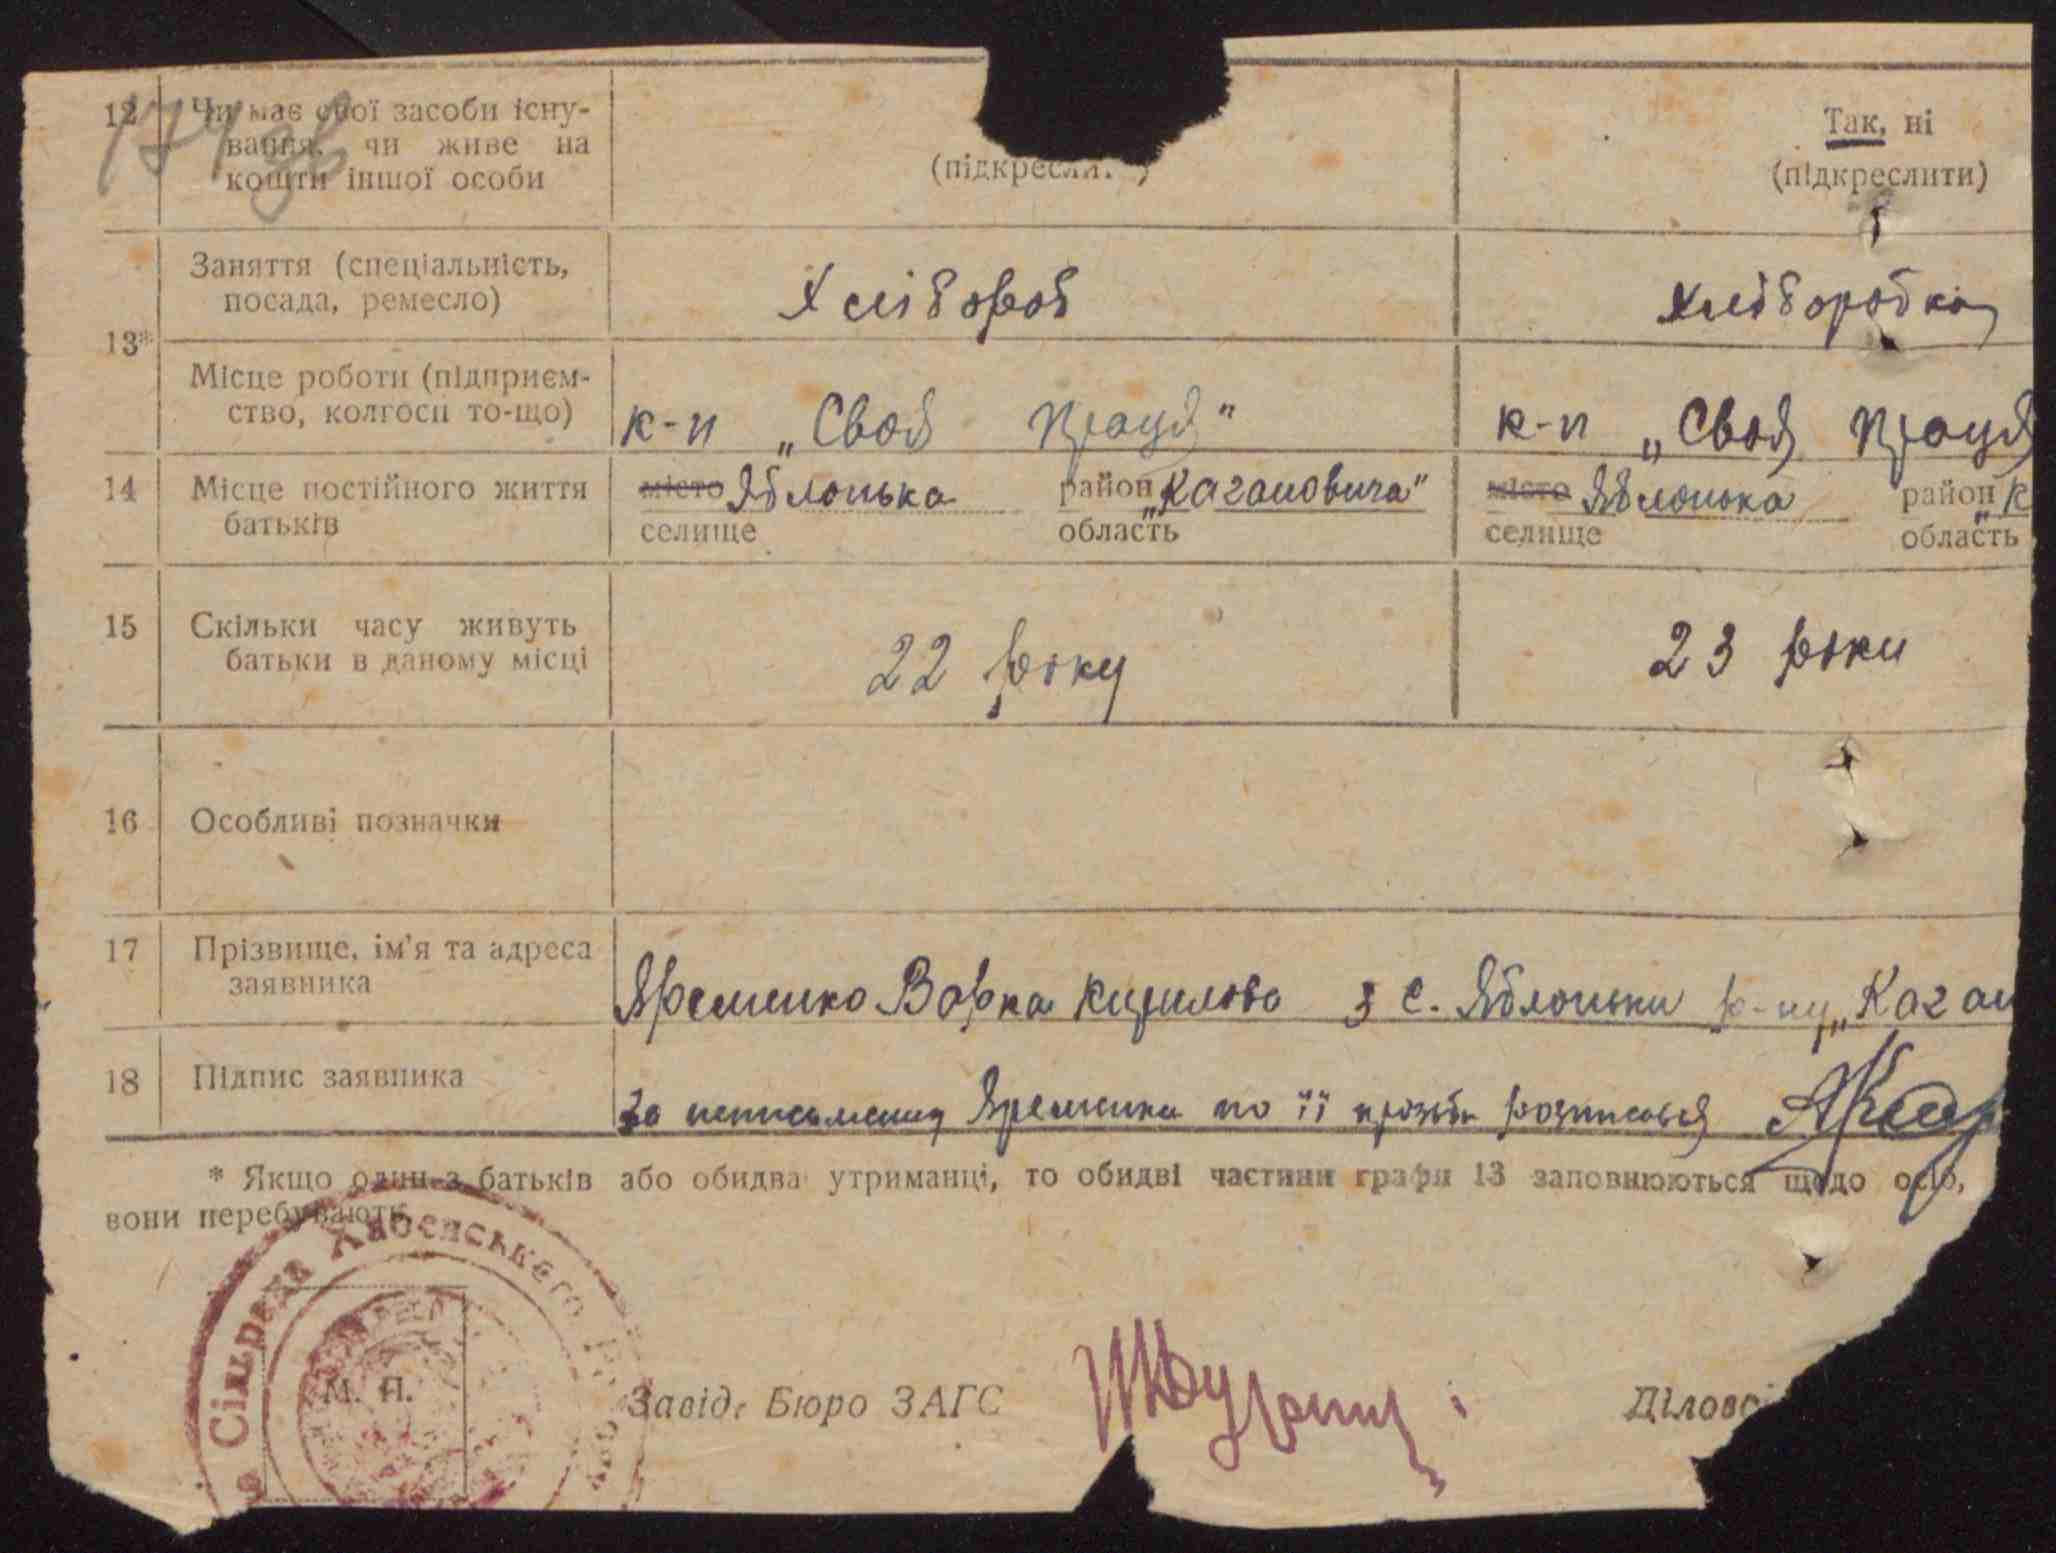 174 зв
12 Чи має свої засоби існу-
вання, чи живе на
кошти іншої особи
(підкресли
Так, ні
(підкреслити)
13*
Заняття (спеціальність,
посада, ремесло)
Хлібороб
Хліборобка
Місце роботи (підприєм-
ство, колгосп то-що)
к-п „Своя праця"
к-п „Своя праця
14 Місце постійного життя
батьків
місто Яблонька район „Кагановича"
селище область
місто Яблонька район „К
селище область
15 Скільки часу живуть
батьки в даному місці
22 року
23 роки
16 Особливі позначки
17 Прізвище, ім'я та адреса
заявника
Яременко Варка Кирилова з с. Яблоньки р-ну „Каган
18 Підпис заявника
За неписьменну Яременко по її прозьби розписався
* Якщо один з батьків або обидва утриманці, то обидві частини графи 13 заповнюються щодо осіб,
вони перебувають.
Сільрада Хабенського
М. П.
Завід. Бюро ЗАГС
Ділово